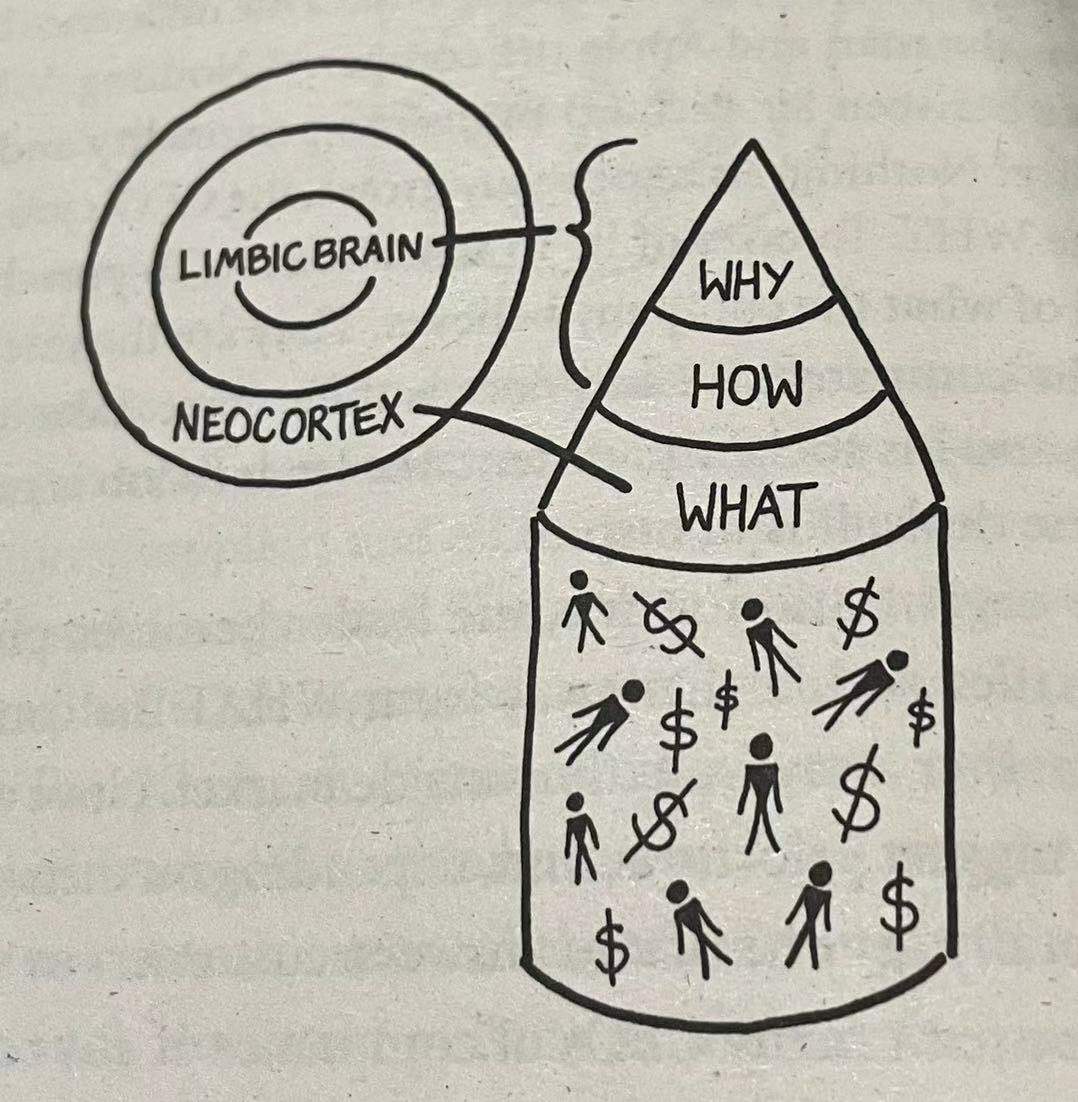 LIMBIC BRAIN
NEOCORTEX
WHY
HOW
WHAT
$ $
$ $ $
$ $
$ $